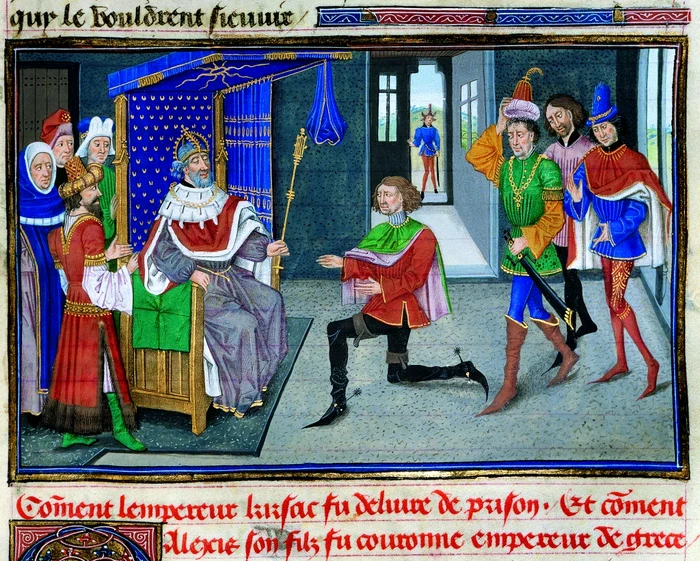 quy le vouldrent sieuuir
Cõment lempereur kirsac fu deliure de prison. Et cõment
Alexis son filz fu couronne empereur de grece